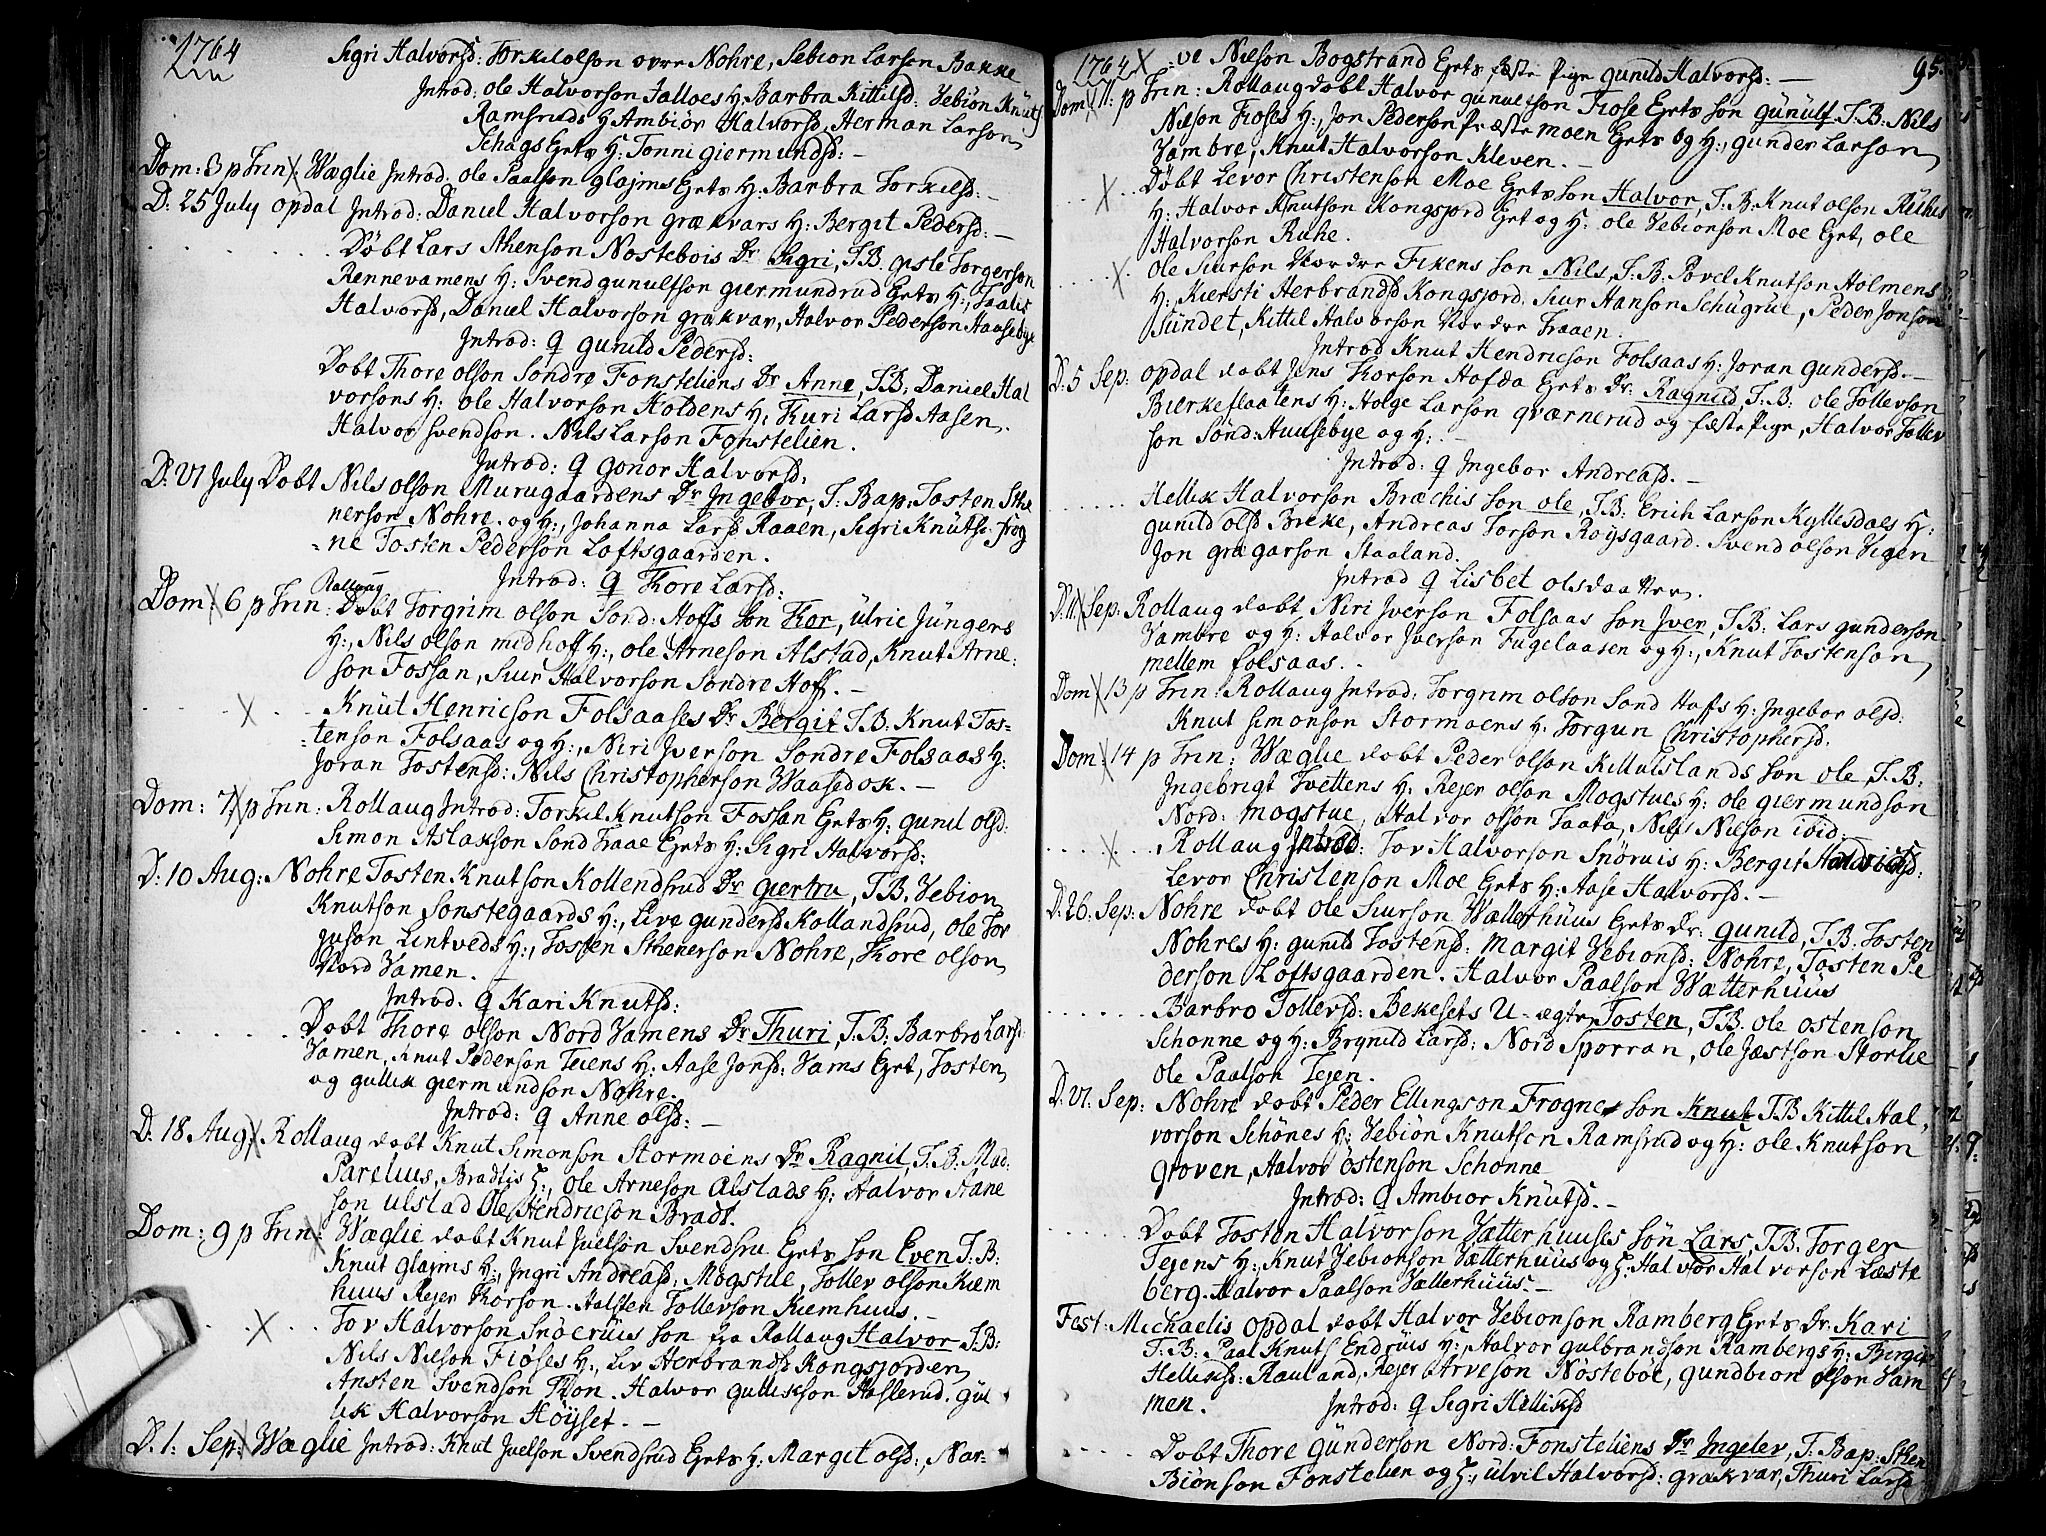 1764
Sigri Halvorsd: Torkelolson øvre Nohre, Sebion Larson Bakke
Introd: ole Halvorson Jalloes H: Barbra Kittilsd: Vebiön Knüts
Ramsruds H Ambiör Halvorsd, Herman Larson
Schags Gets H: Tonni giermundsd: –
Dom: 3 p Trin: Wæglie Introd. ole Paalson glajms Gets H: Barbra Torkilsd: –
D: 25 July opdal Introd: Daniel Halvorson grækvars H: Bergit Pedersd: –
Døbt Lars Sthenson Nostebois Dr Sigri, T.B. gisle Torgerson
Rennevamens H: Svend gunulfson giermundrud Gets H:, Taalis
Halvorsd, Daniel Halvorson grækvar, Halvor Pederson Haasebye
Introd: q gunild Pedersd:
Dobt Thore olson Sondre Fonsteliens Dr Anne, T.B: Daniel Hal
vorsons H: ole Halvorson Holdens H, Thuri Larsd Aasen.
Halvor Svendson. Nils Larson Fonstelien.
Introd: q gonor Halvorsd,
D: VI July Dobt Nils olson Murugaardens Dr Ingebor, T: Bap. Tosten Sthe
nerson Nohre. og H:, Johanna Larsd Raaen, Sigri Knütsd: Frog
=ne Tosten Pederson Loftsgaarden.
Introd: q Thore Larsd:
Dom: 6 p Trin: Rollaug Dobt Torgrim olson Sond: Hoffs Son Thor, ülric Jüngers
H:, Nils olson midhoff H:, ole Arneson Alstad, Knut Arne:
son Fossan, Siur Halvorson Sondre Hoff. –
Knüt Henricson Folsaases Dr Bergit T.B: Knut Tos=
=tenson Folsaas og H:, Niri Jverson Sondre Folsaas H:
Joran Tostensd: Nils Christopherson Waasedok. –
Dom: 7 p Trin: Rollaug Introd: Torkel Knutson Fossan Gets H: gunil olsd:
Simon Aslakson Sond Traae Gets H: Sigri Halvorsd:
D: 10 Aug: Nohre Tosten Knutson Kollendsrud Dr giertru, T.B. Vebion
Knutson Sonstegaards H:, Live gundersd Kollandsrud, ole Tor
juson Lintveds H:, Tosten Sthenerson Nohre, Thore olson
Nord Vamen.
Introd. q Kari Knutsd:
Dobt Thore olson Nord Vamens Dr Thuri, T.B: Barbro Larsd:
Vamen, Knut Pederson Teiens H: Aase Jonsd: Vams Eget, Tosten
og gullik giermundson Nohre.
Introd: q Anne olsd: –
D: 18 Aug, Rollaug dobt Knut Simonson Stormoens Dr Ragnil, T.B: Mad:
Parelius, Bradtis H:, ole Arneson Alstads H: Halvor Stane
son ulstad Ole Hendricson Bradt.
Dom: 9 p Trin: Wæglie dobt Knut Juelson Svendsru Gets son Even T.B:
Knut glajms H: Ingri Andreasd: Mogstue, Tollev olson Kiem
huus Rejer Thorson. Halsten Tollevson Kiemhuus. –
Tov Halvorson Snöeruis son fra Rollaug Halvor T.B:
Nils Nilson Fiöses H:, Liv Herbrandsd Kongsjorden
Ansten Svendson Thon. Halvor gullikson Haslerud. gül
lik Halvorson Höyset. –
D: 1: Sep: Wæglie Introd: Knut Juelson Svendsrud Gets H: Margit olsd:, Nar=
1764 ve Nilson Bogstrand Gets fæste Pige gunild Halvorsd: –
95.
Dom 11: p Trin: Rollaug dobt Halvor gunulfson Fiose Gets son günülf T.B: Nils
Nilson Fioses H:, Jon Pederson Præstemoen Gets og H:, gunder Larson
Vambre, Knut Halvorson Kleven. –
Döbt Levor Christenson Moe Gets son Halvor, T.B: Knut olson Rühes
H: Halvor Knutson Kongsjord Eget og H: ole Vebionson Moe Eget, ole
Halvorson Ruhe.
ole Siurson Nordre Fikens son Nils, T.B: Povel Knutson Holmens
H:, Kiersti Herbrandsd Kongsjord, Siur Hanson Schügrüe, Peder Jonson
Sündet, Kittil Halvorson Nordre Traaen.
Introd Knut Hendricson Folsaas H: Joran gundersd. –
D: 5 Sep: opdal dobt Jens Thorson Hofda Gets Dr: Ragnild, T.B: ole Tollevson
Bierkeflaatens H: Holge Larson qværnerud og fæstepige, Halvor Tollev
son Sønd: Huusebye og H: –
Introd: q Ingebor Andreasd. –
Hellik Halvorson Bræchis son ole, T.B: Erich Larson Kyllesdals H:
gunild olsd Breke, Andreas Torson Roysgaard. Svend olson Vigen
Jon grægarson Staaland.
Introd q Lisbet olsdaatter.
D: 11 Sep: Rollaug dobt Niri Jverson Folsaas son Jver, T.B: Lars gunderson
Vambre og H: Halvor Jverson Fugelaasen og H:, Knut Tostenson
mellem folsaas. –
Dom 13 p Trin: Rollaug Introd: Torgrim olson Sond Hofs H: Ingebor olsd:
Knut Simonson Stormoens H: Torgun Christophersd:
Dom: 14 p Trin: Wæglie dobt Peder olson Killuislands son ole T.B:
Ingebrigt Tvettens H: Rejer olson Mogstues H: ole giermundson
Nord: mogstue, Halvor olson Taata, Nils Nilson ibid.
Rollaug Introd: Tov Halvorson Snöruis H: Bergit Handricsd:
Levor Christenson Moe Gets H: Aase Halvorsd. –
D: 26 Sep: Nohre dobt ole Siurson Wætterhüus Gets Dr: gunild, T.B. Tosten
Nohres H: gunild Tostensd: Margit Vebionsd: Nohre, Tosten Pe
derson Loftsgaarden. Halvor Paalson Wætterhüus
Barbro Tollevsd: Bekesets U-ægte Tosten, T.B. ole ostenson
Schonne og H: Brynild Larsd: Nord Sporran, ole Jæstson Storlie
ole Paalson Tejen.
D. VI. Sep: Nohre dobt Peder Ellingson Frogne son Knut T.B Kittil Hal,
vorson Schönes H: Vebiön Knutson Ramsrud og H: ole Knutson
groven, Halvor östenson Schonne
Introd: q Ambior Knütsd. –
Dobt Tosten Halvorson Vætterhuuses sön Lars, T.B. Torger
Tejens H:, Knut Vebionson Vætterhüus og H: Halvor Halvorson Læste
berg. Halvor Paalson Vætterhüus. –
Fest: Michaelis opdal dobt Halvor Vebionson Ramberg Gets Dr: Kari
T.B: Paal Knuts Endrüis H:, Halvor gulbrandson Rambergs H: Bergit
Helliksd: Rauland, Rejer Arveson Nösteböe, gundbion olson Vam
men.
Introd: q Sigri Helliksd
Dobt Thore günderson Nord: Fonsteliens Dr Ingeler, T: Bap: Sthen
Biönson Fonstelien og H:, ülvil Halvorsd: grækvar, Thuri Larsd